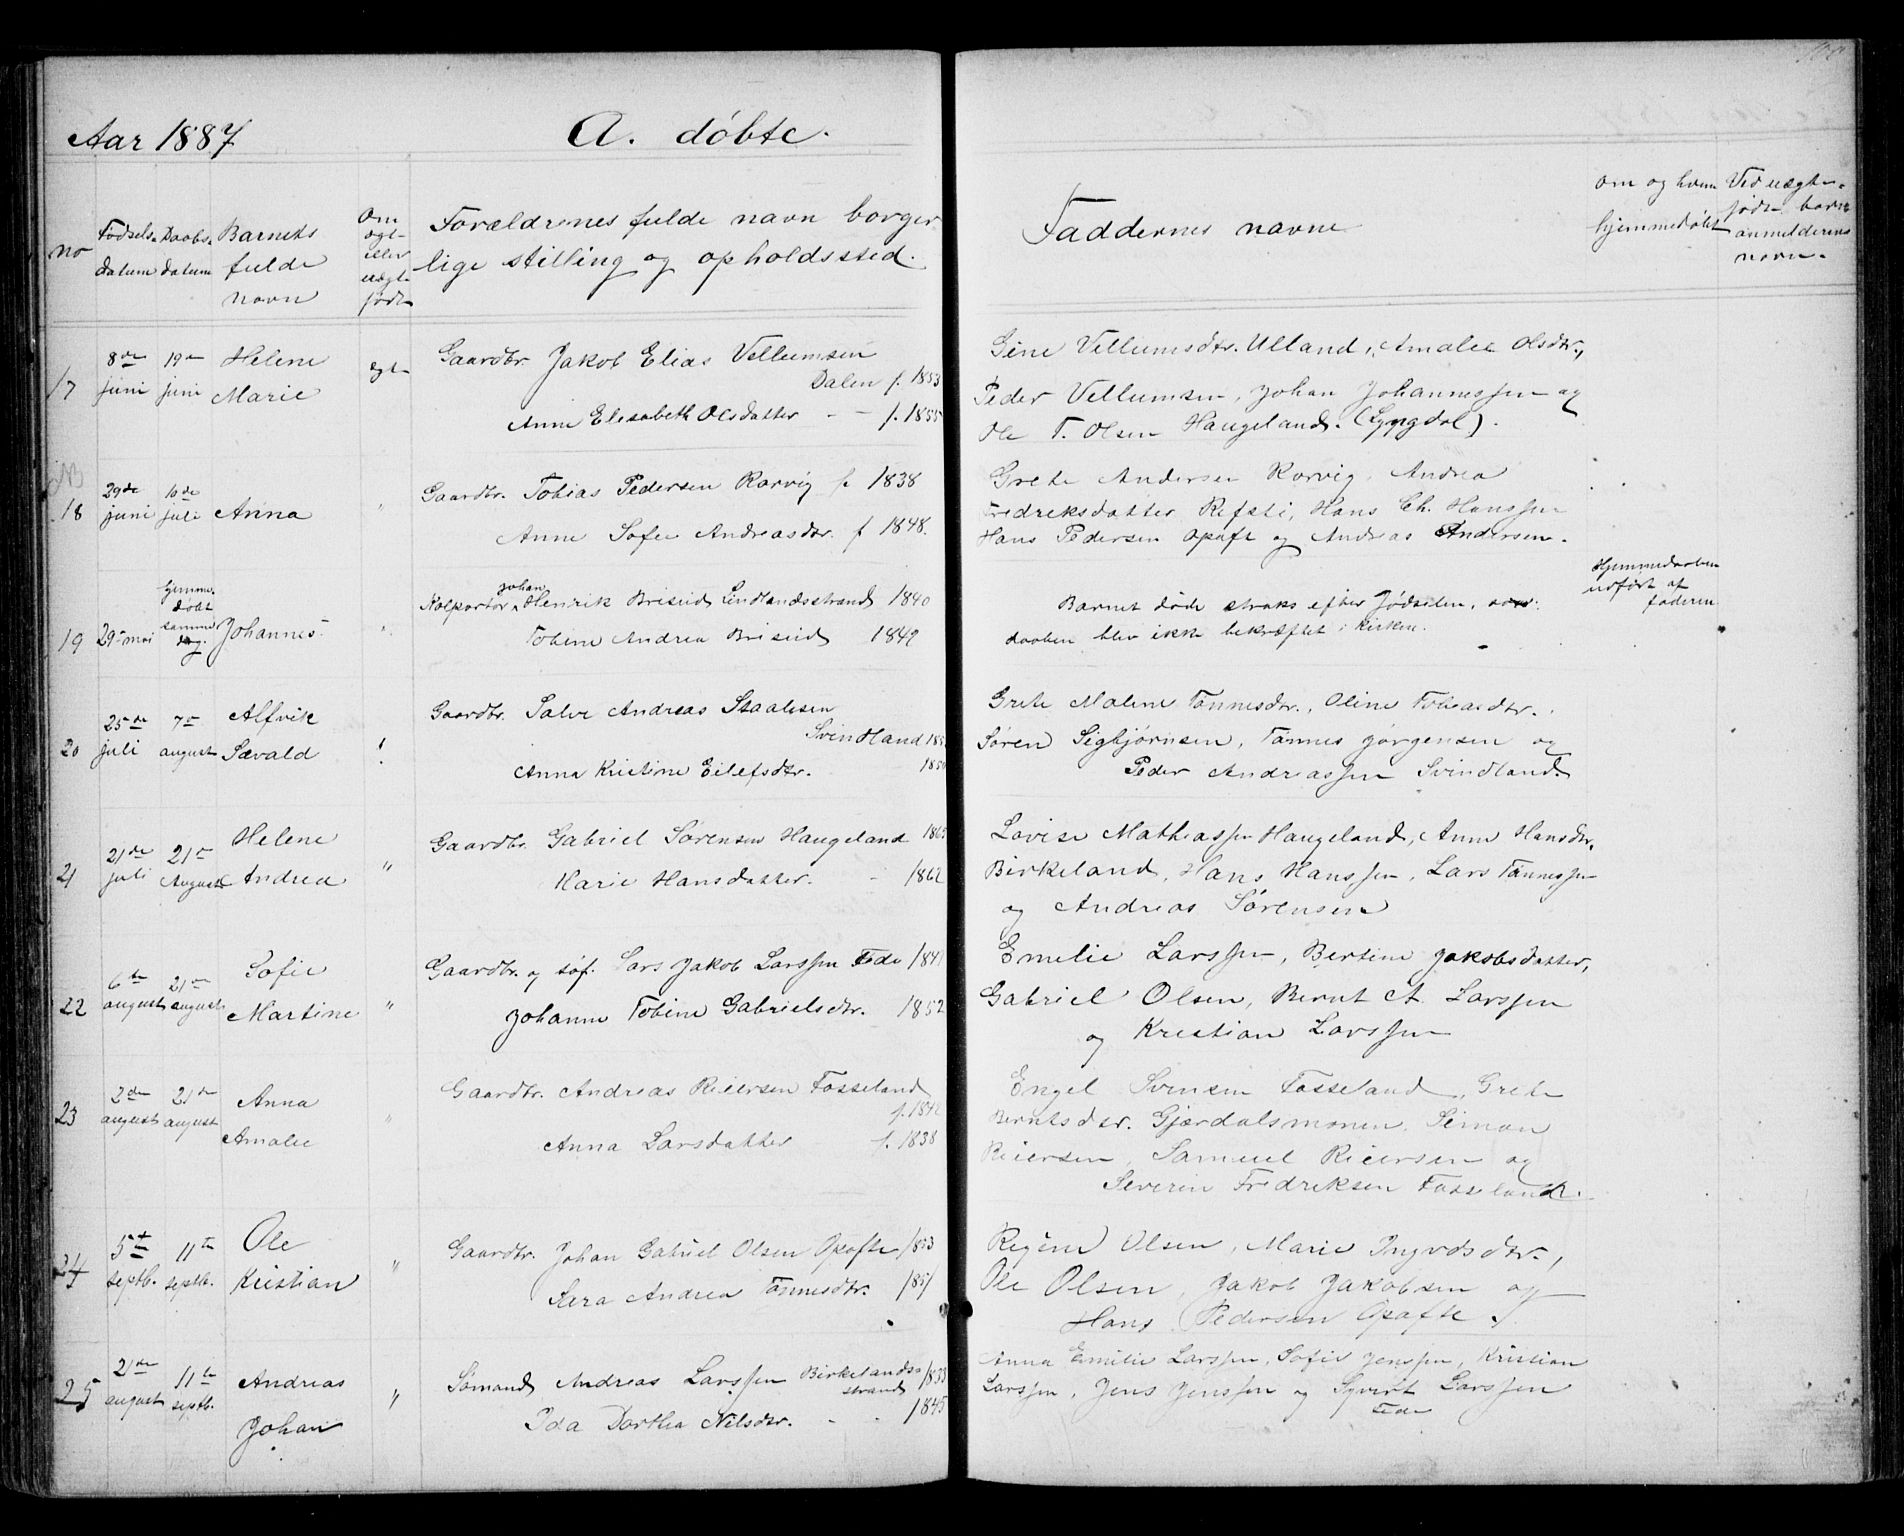 Aar 1887 A. døbte.
no
Fødsels datum
Daabs datum
Barnets fulde navn
Om ægte eller uægte født
Forældrenes fulde navn borger
lige stilling og opholdssted.
Faddernes navne
Om og hvem hjemmedøbt
Ved uægte fødte barns anmelderens navn.
17 8de juni 19de juni Helene Marie ægte
Gaardbr. Jakob Elias Vellumsen
Dalen f. 1853
Anne Elisabeth Olsdatter - - f. 1855
Gine Vellumsdtr. Ulland, Amalie Olsdtr.,
Peder Vellumsen, Johan Johannessen og
Ole T. Olsen Haugeland. (Lyngdal).
NB
18 29de juni 10de juli Anna "
Gaardbr. Tobias Pedersen Rørvig f. 1838
Anne Sofie Andreasdtr. f 1848.
Grete Andersen Rørvig, Andrea
Fredriksdatter Refsti, Hans Ch. Hanssen
Hans Pedersen Opofte og Andreas Andersen.
19 29de mai hjemmedøbt samme dag. Johannes "
Kolportør Johan Henrik Briseid Lindlandsstrand 1840
Tobine Andrea Briseid 1849
Barnet døde straks efter fødselen, saa
daaben blev ikke bekræftet i kirken.
Hjemmedaaben
udført af
faderen
20 25de juli 7de august Alfvik Sævald "
Gaardbr. Salve Andreas Staalesen
Svindland
Anna Kristine Eilefsdtr.
Grete Malene Tønnesdtr., Oline Tobiasdtr.,
Søren Sigbjørnsen, Tønnes Jørgensen og
Peder Andreassen Svindland.
21 21de juli 21de August Helene Andrea "
Gaardbr. Gabriel Sørensen Haugeland
Marie Hansdatter. - 1862
Lovise Mathiassen Haugeland, Anne Hansdtr.
Birkeland, Hans Hanssen, Lars Tønnessen
og Andreas Sørensen
22 6te august 21de august Sofie Martine "
Gaardbr. og søf. Lars Jakob Larssen Fede
Johanne Tobine Gabrielsdtr. 1852
Emelie Larssen, Bertine Jakobsdatter,
Gabriel Olsen, Bernt A. Larssen
og Kristian Larssen
23 2den august 21de august Anna Amalie "
Gaardbr. Andreas Reiersen Fosseland
f. 1842
Anna Larsdatter f. 1838
Engel Svensen Fosseland, Grete
Berntsdtr. Gjærdalsmonen, Simon
Reiersen, Samuel Reiersen og
Severin Fredriksen Fosseland.
24 5te septb. 11te septb. Ole Kristian "
Gaardbr. Johan Gabriel Olsen Opofte 1853
Sara Andrea Tønnesdtr. 1851
Regine Olsen, Marie Ingvdsdtr.,
Ole Olsen, Jakob Jakobsen og
Hans Pedersen Opofte.
25 21de august 11te septb. Andreas Johan "
Sømand Andreas Larssen Birkelandsstrand 1833
Ida Dorthea Nilsdtr. - - 1845
Anna Emilie Larssen, Sofie Jenssen, Kristian
Larssen, Jens Jenssen og Syvert Larssen
Fede